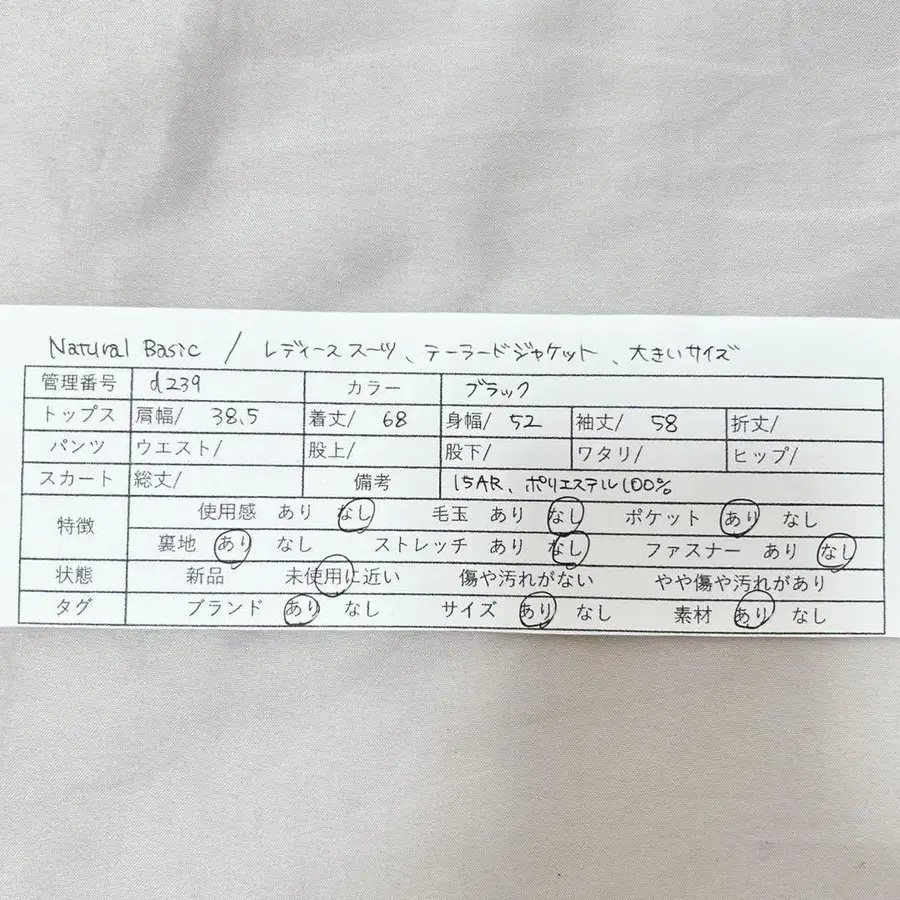 Natural Basic / レディーススーツ、テーラードジャケット、大きいサイズ
管理番号 d239 カラー ブラック
トップス 肩幅/ 38.5 着丈/ 68 身幅/ 52 袖丈/ 58 折丈/
パンツ ウエスト/ 股上/ 股下/ ワタリ/ ヒップ/
スカート 総丈/ 備考 15AR、ポリエステル100%
特徴 使用感 あり なし 毛玉 あり なし ポケット あり なし
裏地 あり なし ストレッチ あり なし ファスナー あり なし
状態 新品 未使用に近い 傷や汚れがない やや傷や汚れがあり
タグ ブランド あり なし サイズ あり なし 素材 あり なし